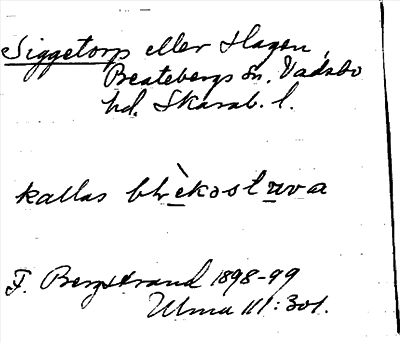 Siggetorp eller Hagen,
Beatebergs sn. Vadsbo
hd. Skarab. l.
kallas blèkostuva
F. Bergstrand 1898-99
Ulma 111:301.